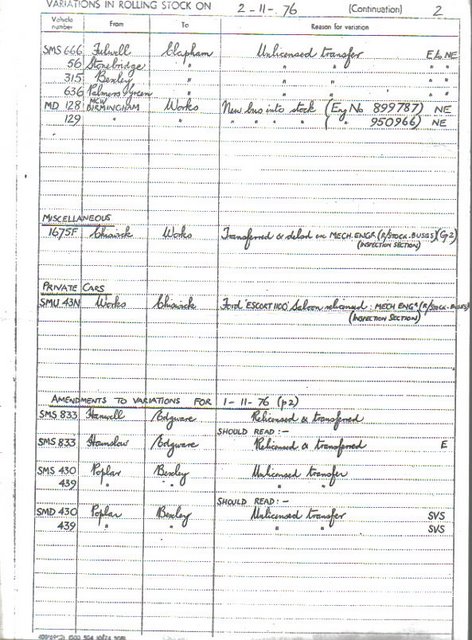 VARIATIONS IN ROLLING STOCK ON 2-11-76 (Continuation) 2
Vehicle number From To Reason for variation
SMS 666 Fulwell Clapham Unlicensed transfer E6, NE
56 Stonebridge " " " "
315 Bexley " " " " "
636 Palmers Green " " " " "
MD 128 MCW BIRMINGHAM Works New bus into stock (Eng No 899787) NE
129 " " " " " " ( " 950966) NE
MISCELLANEOUS
1675F Chiswick Works Transferred & delsd on MECH. ENGR (R/STOCK. BUSES)(Gp2)
(INSPECTION SECTION)
PRIVATE CARS
SMU 43N Works Chiswick Ford 'ESCORT 1100' Saloon relicensed: MECH ENGR (R/STOCK-BUSES)
(INSPECTION SECTION)
AMENDMENTS TO VARIATIONS FOR 1-11-76 (p2)
SMS 833 Hanwell Edgware Relicensed & transferred
SHOULD READ:-
SMS 833 Hounslow Edgware Relicensed & transferred E
SMS 430 Poplar Bexley Unlicensed transfer
439 " " " "
SHOULD READ:-
SMD 430 Poplar Bexley Unlicensed transfer SVS
439 " " " " SVS